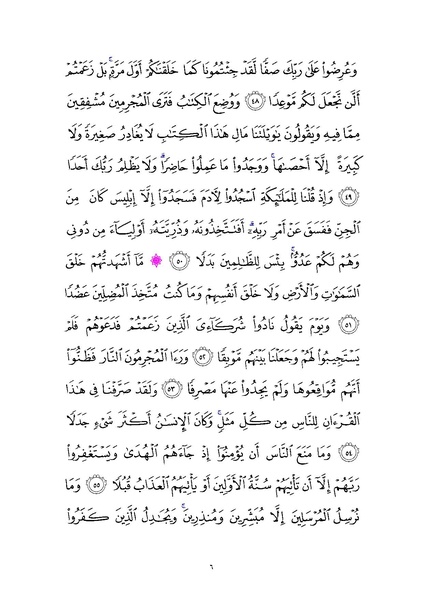 وَعُرِضُوا۟ عَلَىٰ رَبِّكَ صَفًّا لَّقَدْ جِئْتُمُونَا كَمَا خَلَقْنَٰكُمْ أَوَّلَ مَرَّةٍۭ ۚ بَلْ زَعَمْتُمْ
أَلَّن نَّجْعَلَ لَكُم مَّوْعِدًا ٤٨ وَوُضِعَ ٱلْكِتَٰبُ فَتَرَى ٱلْمُجْرِمِينَ مُشْفِقِينَ
مِمَّا فِيهِ وَيَقُولُونَ يَٰوَيْلَتَنَا مَالِ هَٰذَا ٱلْكِتَٰبِ لَا يُغَادِرُ صَغِيرَةً وَلَا
كَبِيرَةً إِلَّآ أَحْصَىٰهَا ۚ وَوَجَدُوا۟ مَا عَمِلُوا۟ حَاضِرًا ۗ وَلَا يَظْلِمُ رَبُّكَ أَحَدًا
٤٩ وَإِذْ قُلْنَا لِلْمَلَٰٓئِكَةِ ٱسْجُدُوا۟ لِـَٔادَمَ فَسَجَدُوٓا۟ إِلَّآ إِبْلِيسَ كَانَ مِنَ
ٱلْجِنِّ فَفَسَقَ عَنْ أَمْرِ رَبِّهِۦٓ ۗ أَفَتَتَّخِذُونَهُۥ وَذُرِّيَّتَهُۥٓ أَوْلِيَآءَ مِن دُونِى
وَهُمْ لَكُمْ عَدُوٌّۢ ۚ بِئْسَ لِلظَّٰلِمِينَ بَدَلًا ٥٠ ۞ مَّآ أَشْهَدتُّهُمْ خَلْقَ
ٱلسَّمَٰوَٰتِ وَٱلْأَرْضِ وَلَا خَلْقَ أَنفُسِهِمْ وَمَا كُنتُ مُتَّخِذَ ٱلْمُضِلِّينَ عَضُدًا
٥١ وَيَوْمَ يَقُولُ نَادُوا۟ شُرَكَآءِىَ ٱلَّذِينَ زَعَمْتُمْ فَدَعَوْهُمْ فَلَمْ
يَسْتَجِيبُوا۟ لَهُمْ وَجَعَلْنَا بَيْنَهُم مَّوْبِقًا ٥٢ وَرَءَا ٱلْمُجْرِمُونَ ٱلنَّارَ فَظَنُّوٓا۟
أَنَّهُم مُّوَاقِعُوهَا وَلَمْ يَجِدُوا۟ عَنْهَا مَصْرِفًا ٥٣ وَلَقَدْ صَرَّفْنَا فِى هَٰذَا
ٱلْقُرْءَانِ لِلنَّاسِ مِن كُلِّ مَثَلٍ ۚ وَكَانَ ٱلْإِنسَٰنُ أَكْثَرَ شَىْءٍ جَدَلًا
٥٤ وَمَا مَنَعَ ٱلنَّاسَ أَن يُؤْمِنُوٓا۟ إِذْ جَآءَهُمُ ٱلْهُدَىٰ وَيَسْتَغْفِرُوا۟
رَبَّهُمْ إِلَّآ أَن تَأْتِيَهُمْ سُنَّةُ ٱلْأَوَّلِينَ أَوْ يَأْتِيَهُمُ ٱلْعَذَابُ قُبُلًا ٥٥ وَمَا
نُرْسِلُ ٱلْمُرْسَلِينَ إِلَّا مُبَشِّرِينَ وَمُنذِرِينَ ۚ وَيُجَٰدِلُ ٱلَّذِينَ كَفَرُوا۟
٦